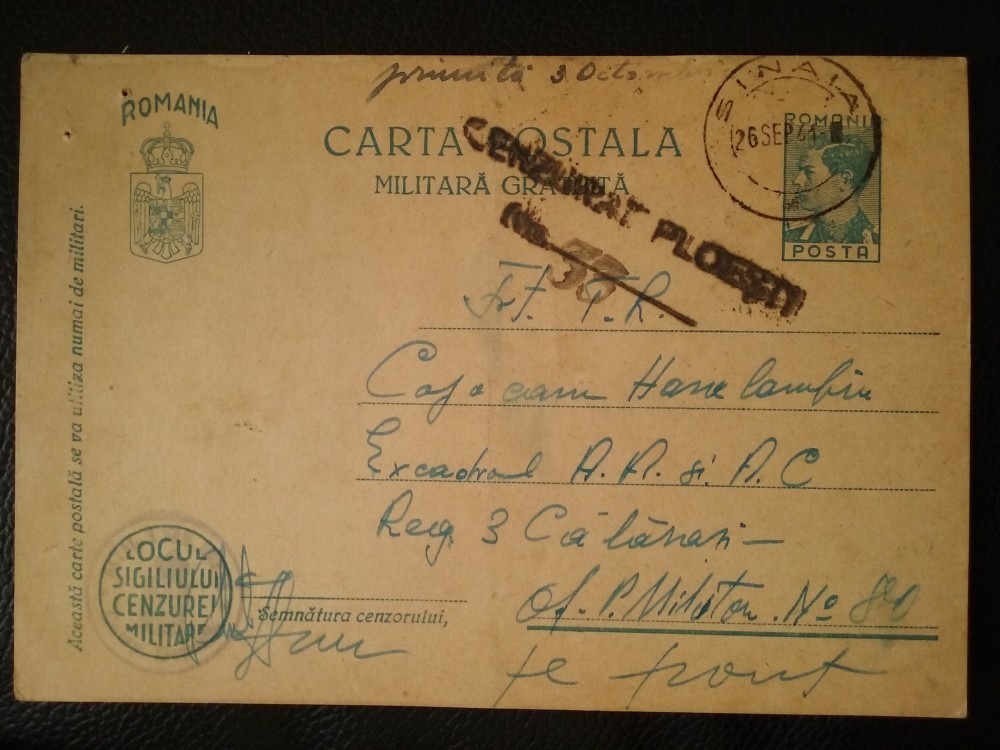 primită 3 Octombrie
ROMANIA
CARTA POSTALA
MILITARĂ GRATUITĂ
SINAIA
26 SEP 41
ROMANIA
POSTA
CENZURAT PLOEȘTI
No. 33
T.R.
Haralambie
Excadronul A.A. și A.C
Reg 3 Călărași —
Of. P. Militar No 80
pe front
Această carte poștală se va utiliza numai de militari.
LOCUL
SIGILIULUI
CENZUREI
MILITARE
Semnătura cenzorului,